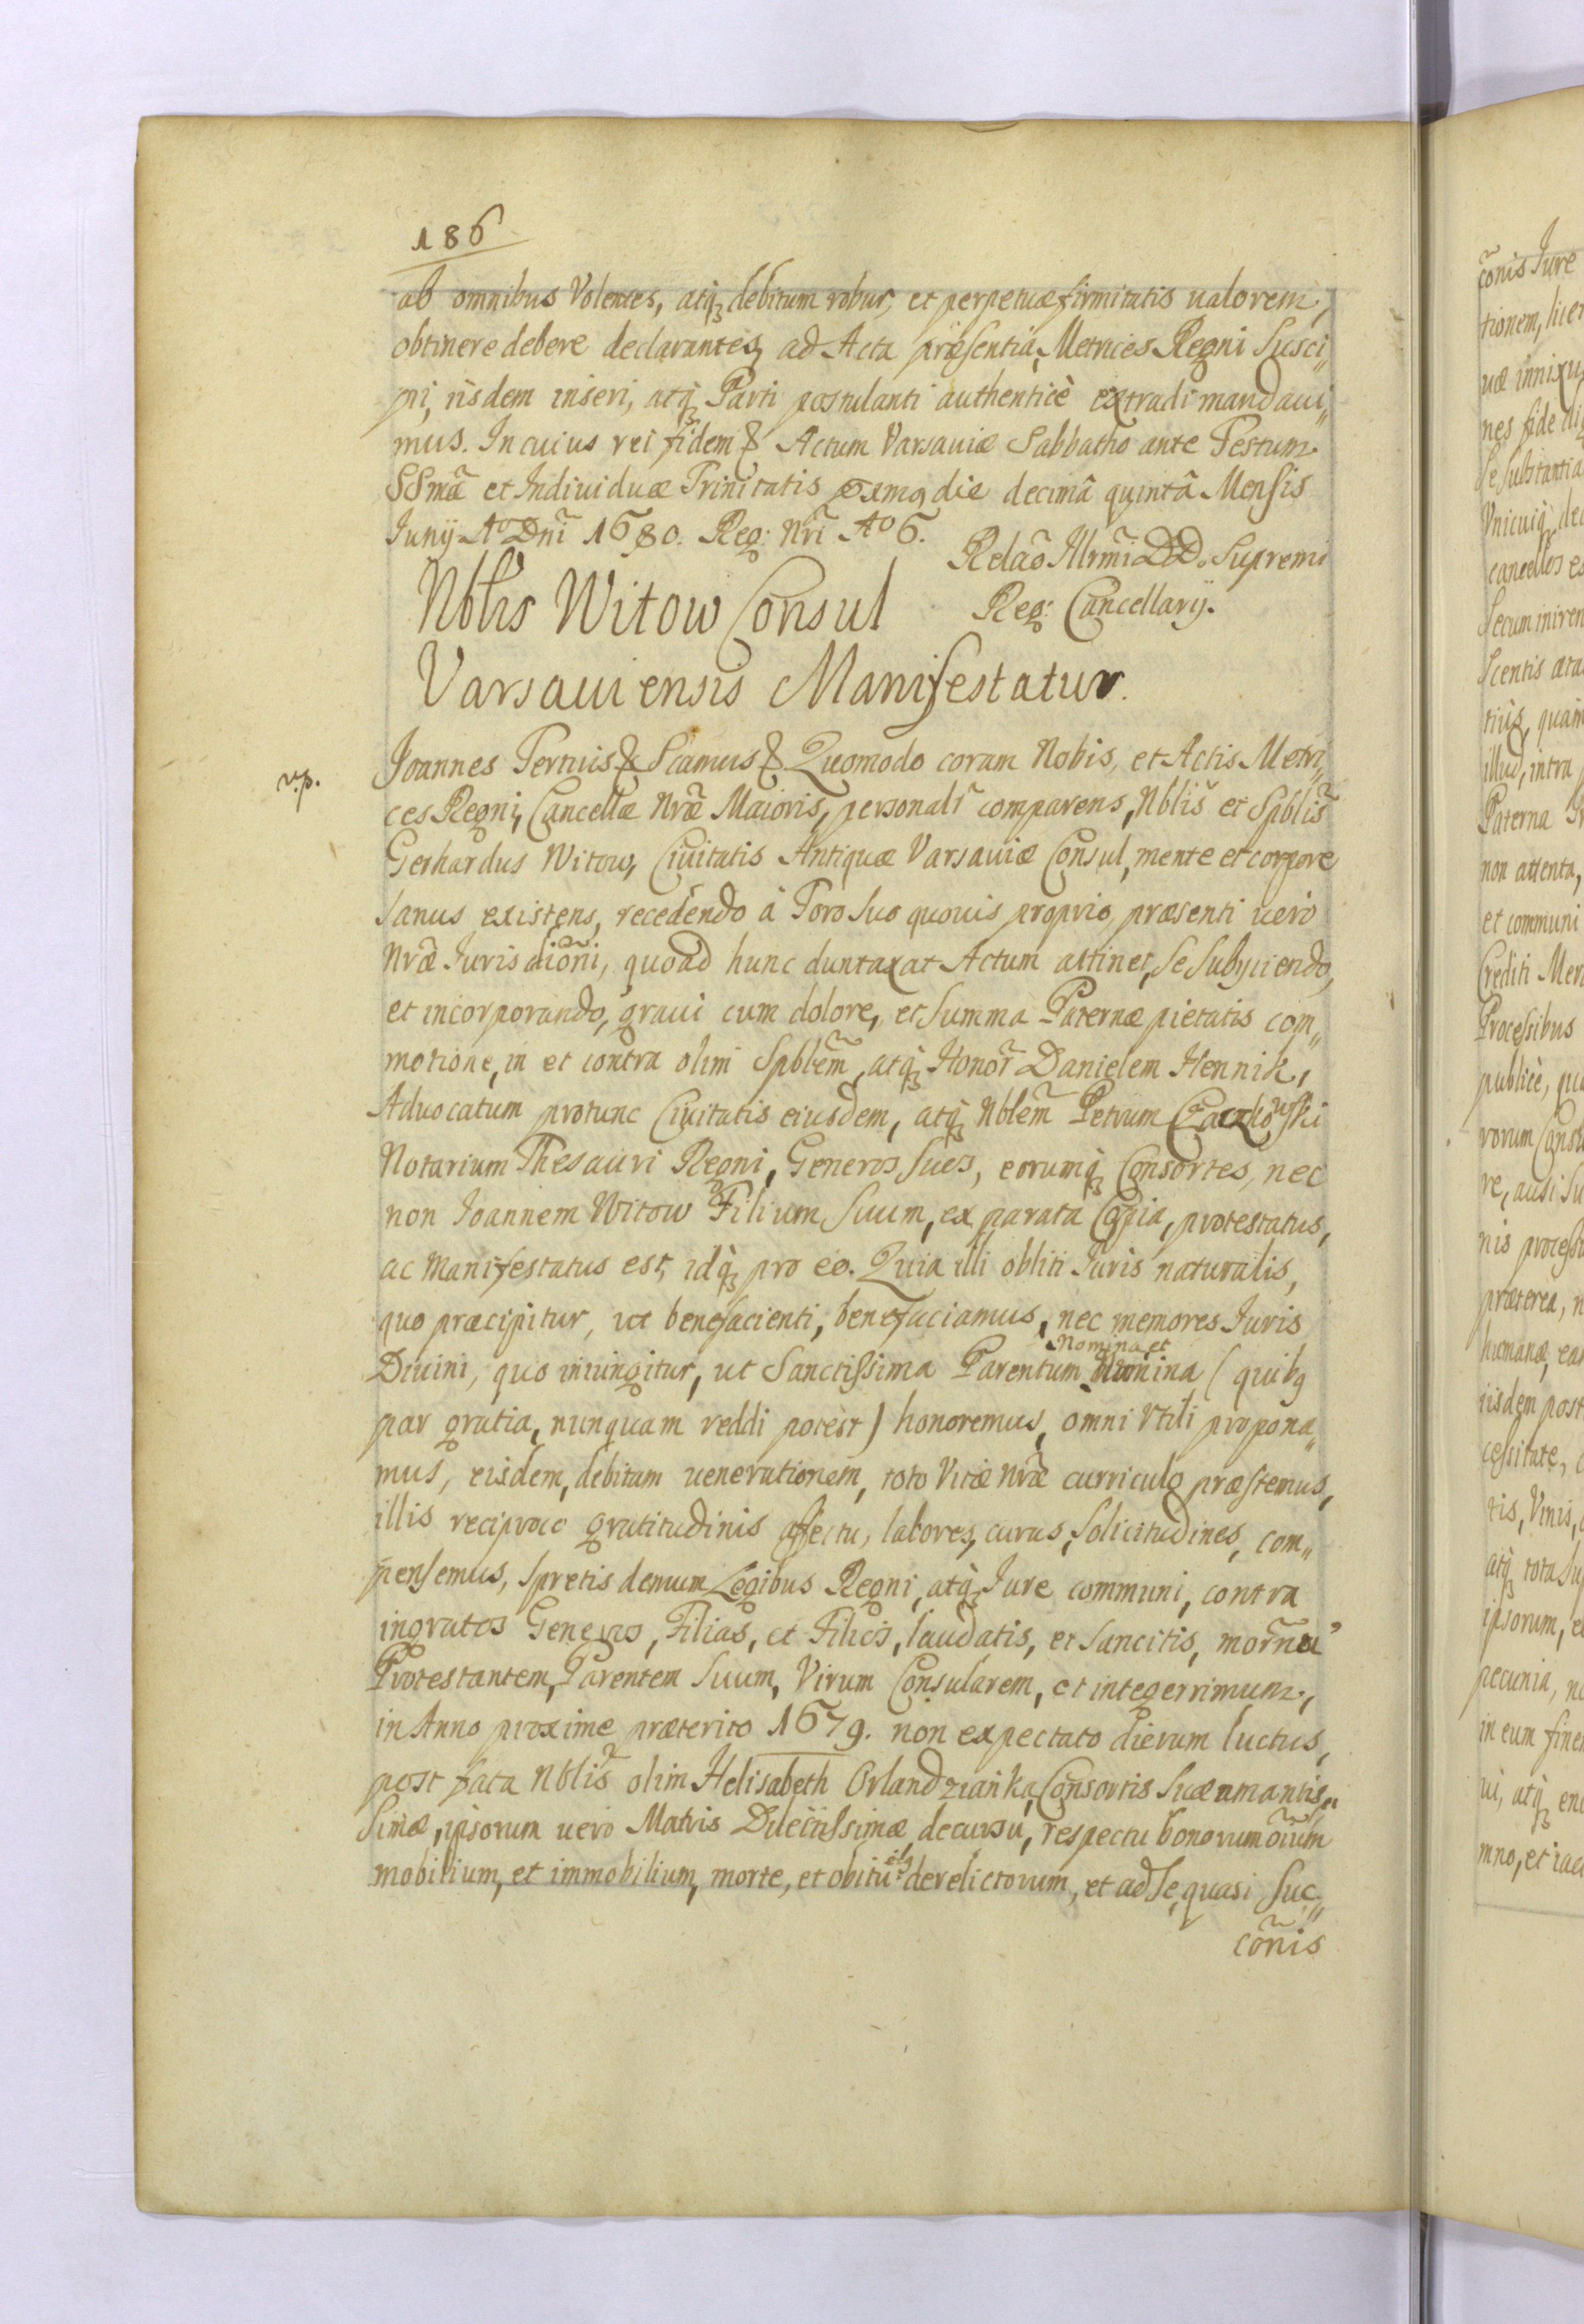 186
ab omnibus Volentes, atq₃ debitum robur, et perpetuæ firmitatis ualorem,
obtinere debere declarantes, ad Acta præsentia, Metrices Regni Susci„
pi, iisdem inseri, atq₃ Parti postulanti authenticè extradi mandaui„
mus. In cuius rei fidem & Actum Varsauiæ Sabbatho ante Festum
SSmæ̃ et Indiuiduæ Trinitatis die decimâ quintâ Mensis
Iunij Aº Dñi 1680. Reg: Nr̃i Aº 6.
Relaõ Illrmĩ DD. Supremi
Reg: Cancellarij.
Nblis Witow Consul
Varsauiensis Manifestatur.
v.p.
Joannes Tertius & Scamus & Quomodo coram Nobis, et Actis Metri„
ces Regni, Cancellæ Nr̃æ Maioris, personalr̃ comparens, Nblis̃ et Spblis̃
Gerhardus Witow, Ciuitatis Antiquæ Varsauiæ Consul, mente et corpore
sanus existens, recedendo à Foro Suo quouis proprio, præsenti uero
Nr̃æ Iurisdiõni, quoad hunc duntaxat Actum attinet, Se Subijciendo,
et incorporando, graui cum dolore, et Summa Paternæ pietatis com„
motione, in et contra olim Spblem̃, atq₃ Honor̃ Danielem Hennik,
Aduocatum protunc Ciuitatis eiusdem, atq₃ Nblem̃ Petrum Czaczkowski
Notarium Thesauri Regni, Generos Suos, eorumq₃ Consortes, nec
non Joannem Witow Filium Suum, ex parata Copia, protestatus,
ac manifestatus est, idq₃ pro eo. Quia illi obliti Juris naturalis,
quo præcipitur, ut benefacienti, benefaciamus, nec memores Iuris
Nomina et
Diuini, quo iniungitur, ut Sanctissima Parentum Numina (quibg
par gratia, nunquam reddi potest) honoremus, omni Vtili propona„
mus, eisdem, debitam uenerationem, toto Vitæ nr̃æ curriculo præstemus,
illis reciproco gratitudinis affectu, labores, curas, Solicitudines, com„
pensemus, Spretis demum Legibus Regni, atq₃ Jure communi, contra
ingratos Generos, Filias, et Filios, laudatis, et Sancitis,
Protestantem, Parentem Suum, Virum Consularem, et integerrimum,
in Anno proxime præterito 1679. non expectato dierum luctus,
post fata Nblis̃ olim Helisabeth Orlandzianka, Consortis Suæ amantis„
Simæ, ipsorum uero Matris Dilectissimæ decursu, respectu bonorum oĩum
mobilium, et immobilium, morte, et obitu eig derelictorum, et ad Se, quasi Suc„
cõnis